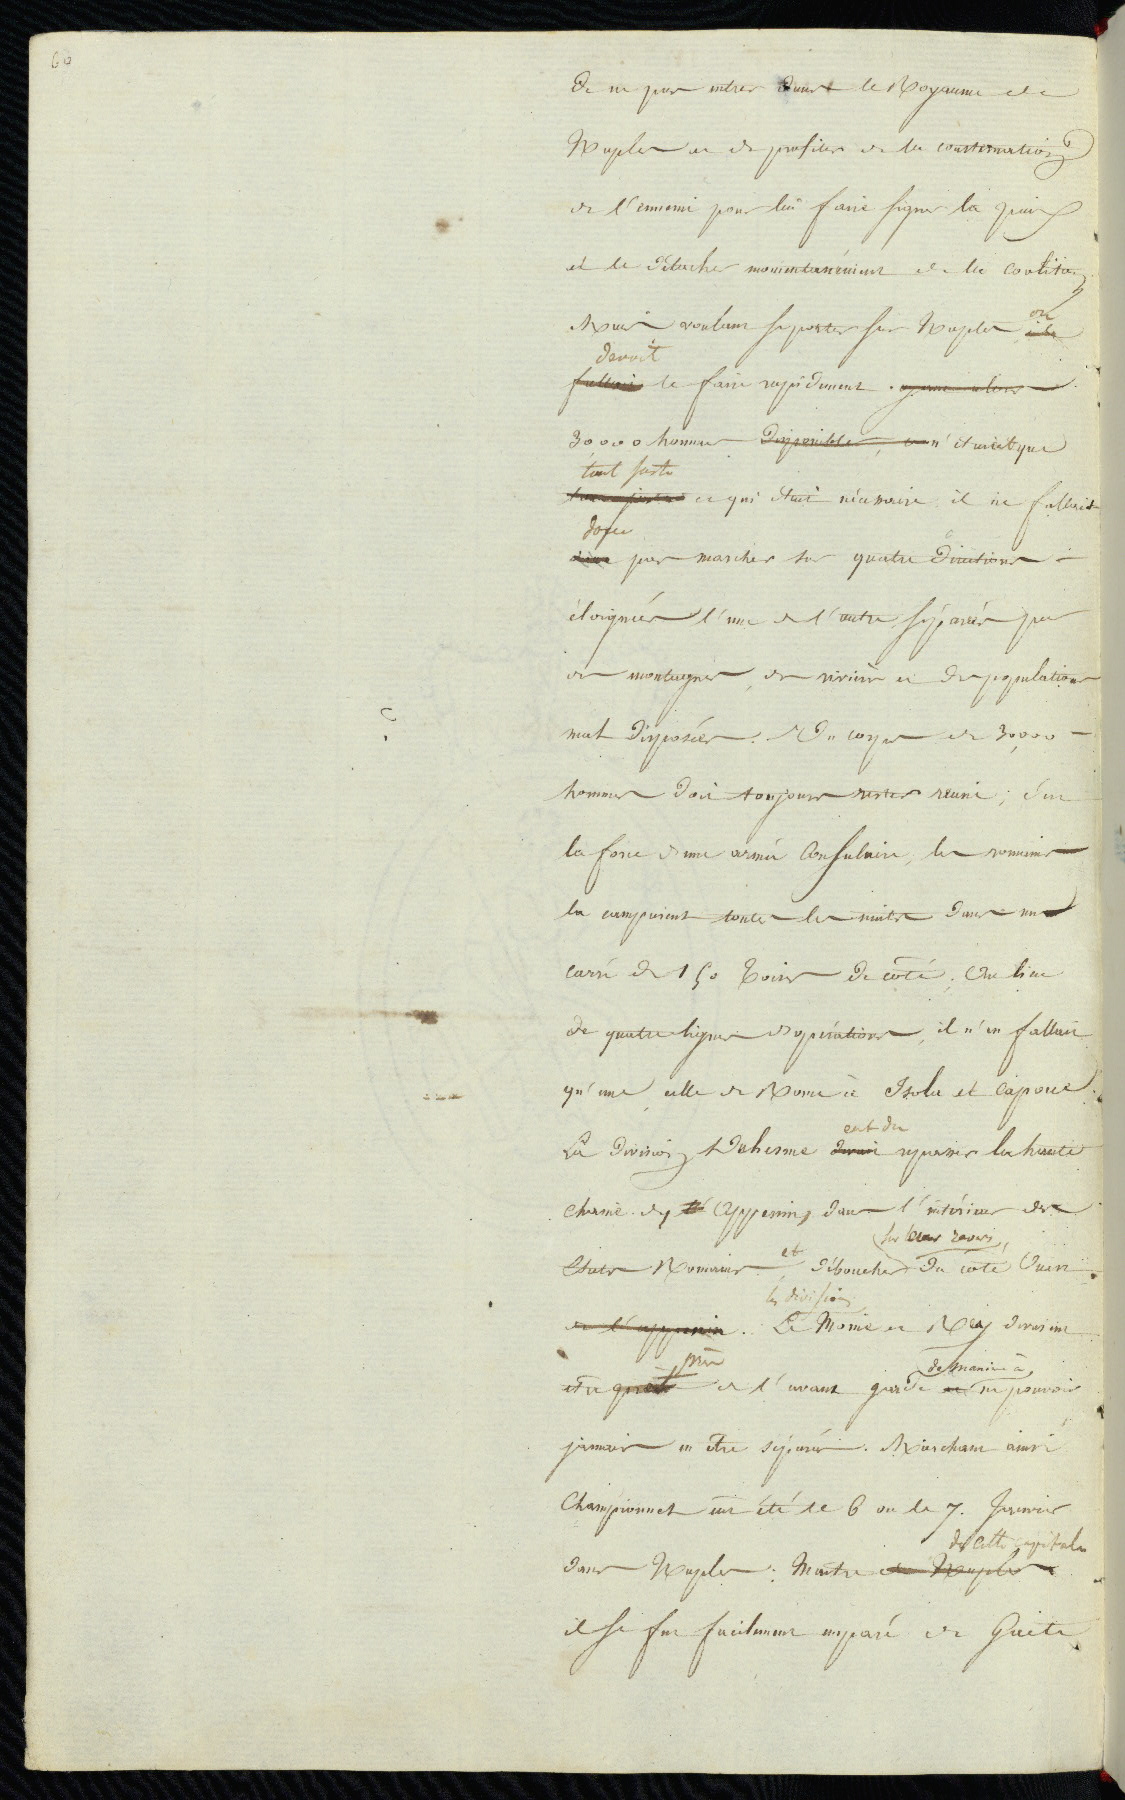 60
de ne pas entrer dans le Royaume de
Naples et de profiter de la consternation
de l'ennemi pour lui faire signer la paix
et le détacher momentanément de la coalition
Mais voulant se porter sur Naples on
devait
fallait le faire rapidement.
30000 hommes disponibles, ce n'étaient que
tout juste
tout juste ce qui était nécessaire il ne fallait
donc
donc pas marcher sur quatre directions
éloignées l'une de l'autre séparées par
des montagnes, des rivières et des populations
mal disposées. Un corps de 30,000
hommes doit toujours rester réuni; c'est
la force d'une armée Consulaire, les romains
la campaient toutes les nuits dans un
carré de 150 toises de côté. Au lieu
de quatre lignes d'opérations, il n'en fallait
qu'une, celle de Rome à Isola et Capoue.
eut du
La division Duhesme devait repasser la haute
chaine des Appenins dans l'intérieur des
sur leur revers,
Etats Romains et déboucher du côté Ouest
les divisions
de l'appenin. Le Moine et Rey devaient
près
être près de l'avant garde de maniere à ne pouvoir
jamais en être séparés. Marchant ainsi
Championnet eut été le 6 ou le 7. Janvier
de cette capitale
dans Naples; Maitre de Naples
il se fut facilement emparé de Gaëte